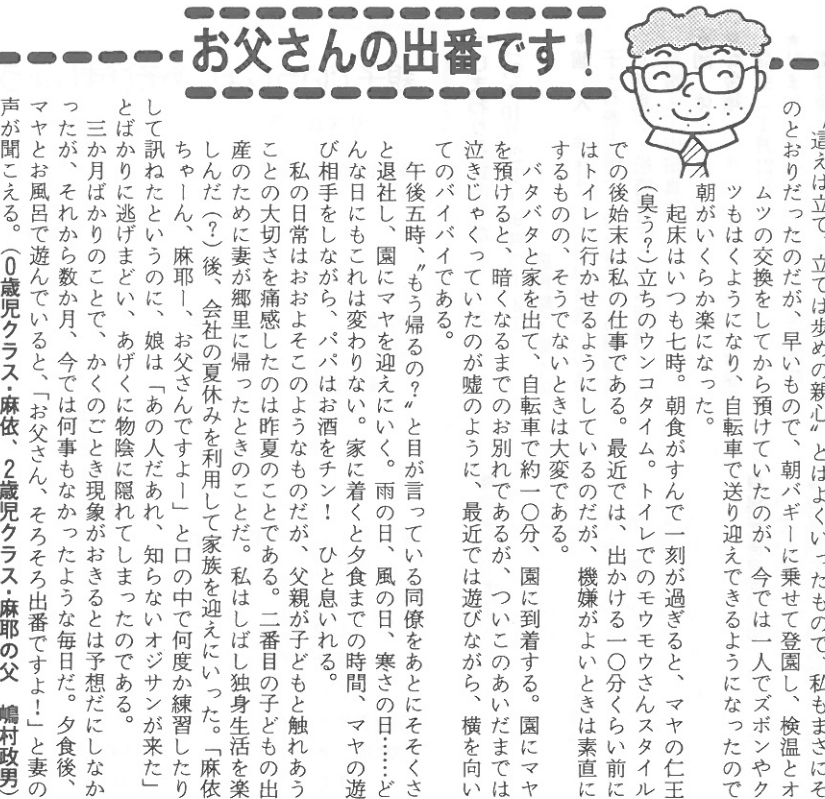 お父さんの出番です!
這えば立て、立てば歩めの親心〟とはよくいったもので、私もまさにそ
のとおりだったのだが、早いもので、朝バギーに乗せて登園し、検温とオ
ムツの交換をしてから預けていたのが、今では一人でズボンやク
ツもはくようになり、自転車で送り迎えできるようになったので
朝がいくらか楽になった。
起床はいつも七時。朝食がすんで一刻が過ぎると、マヤの仁王
(臭う?)立ちのウンコタイム。トイレでのモウモウさんスタイル
での後始末は私の仕事である。最近では、出かける一〇分くらい前に
はトイレに行かせるようにしているのだが、機嫌がよいときは素直に
するものの、そうでないときは大変である。
バタバタと家を出て、自転車で約一〇分、園に到着する。園にマヤ
を預けると、暗くなるまでのお別れであるが、ついこのあいだまでは
泣きじゃくっていたのが嘘のように、最近では遊びながら、横を向い
てのバイバイである。
午後五時、〝もう帰るの?〟と目が言っている同僚をあとにそそくさ
と退社し、園にマヤを迎えにいく。雨の日、風の日、寒さの日……ど
んな日にもこれは変わりない。家に着くと夕食までの時間、マヤの遊
び相手をしながら、パパはお酒をチン! ひと息いれる。
私の日常はおおよそこのようなものだが、父親が子どもと触れあう
ことの大切さを痛感したのは昨夏のことである。二番目の子どもの出
産のために妻が郷里に帰ったときのことだ。私はしばし独身生活を楽
しんだ(?)後、会社の夏休みを利用して家族を迎えにいった。「麻依
ちゃーん、麻耶ー、お父さんですよー」と口の中で何度か練習したり
して訊ねたというのに、娘は「あの人だあれ、知らないオジサンが来た」
とばかりに逃げまどい、あげくに物陰に隠れてしまったのである。
三か月ばかりのことで、かくのごとき現象がおきるとは予想だにしなか
ったが、それから数か月、今では何事もなかったような毎日だ。夕食後、
マヤとお風呂で遊んでいると、「お父さん、そろそろ出番ですよ!」と妻の
声が聞こえる。(0歳児クラス・麻依、2歳児クラス・麻耶の父 嶋村政男)